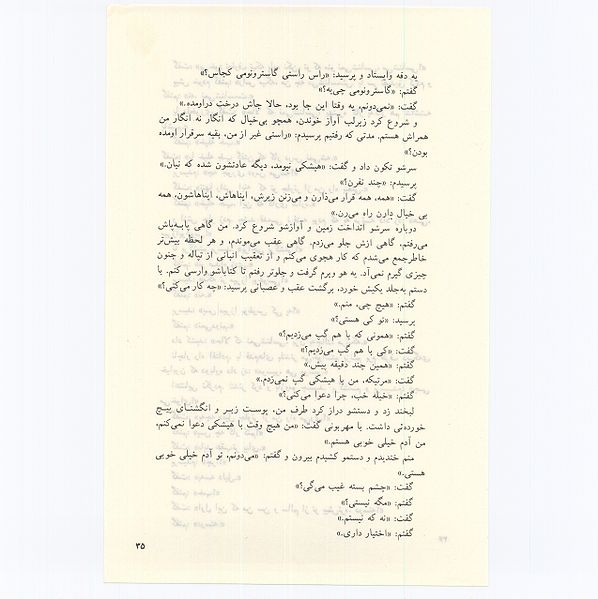 یه دفه وایستاد و پرسید: «راس راستی گاسترونومی کجاس؟»
گفتم: «گاسترونومی چی‌یه؟»
گفت: «نمی‌دونم، یه وقتا این جا بود، حالا جاش درخت دراومده.»
و شروع کرد زیرلب آواز خوندن، همچو بی‌خیال که انگار نه انگار من
همراش هستم. مدتی که رفتیم پرسیدم: «راستی غیر از من، بقیه سرقرار اومده
بودن؟»
سرشو تکون داد و گفت: «هیشکی نیومد، دیگه عادتشون شده که نیان.»
پرسیدم: «چند نفرن؟»
گفت: «همه، همه قرار می‌ذارن و می‌زنن زیرش، ایناهاش، ایناهاشون، همه
بی خیال دارن راه می‌رن.»
دوباره سرشو انداخت زمین و آوازشو شروع کرد. من گاهی پابه‌پاش
می‌رفتم، گاهی ازش جلو می‌زدم. گاهی عقب می‌موندم، و هر لحظه بیش‌تر
خاطرجمع می‌شدم که کار هجوی می‌کنم و از تعقیب انبانی از تپاله و چنون
چیزی گیرم نمی‌آد. یه هو ویرم گرفت و جلوتر رفتم تا کتاباشو وارسی کنم. یا
دستم به‌جلد یکیش خورد، برگشت عقب و عصبانی پرسید: «چه کار می‌کنی؟»
گفتم: «هیچ چی، منم.»
پرسید: «تو کی هستی؟»
گفتم: «همونی که با هم گپ می‌زدیم؟»
گفت: «کی با هم گپ می‌زدیم؟»
گفتم: «همین چند دقیقه پیش.»
گفت: «مرتیکه، من با هیشکی گپ نمی‌زدم.»
گفتم: «خیله خب، چرا دعوا می‌کنی؟»
لبخند زد و دستشو دراز کرد طرف من، پوست زبر و انگشتای پیچ
خورده‌ئی داشت. با مهربونی گفت: «من هیچ وقت با هیشکی دعوا نمی‌کنم،
من آدم خیلی خوبی هستم.»
منم خندیدم و دستمو کشیدم بیرون و گفتم: «می‌دونم، تو آدم خیلی خوبی
هستی.»
گفت: «چشم بسته غیب می‌گی؟»
گفتم: «مگه نیستی؟»
گفت: «نه که نیستم.»
گفتم: «اختیار داری.»
۳۵